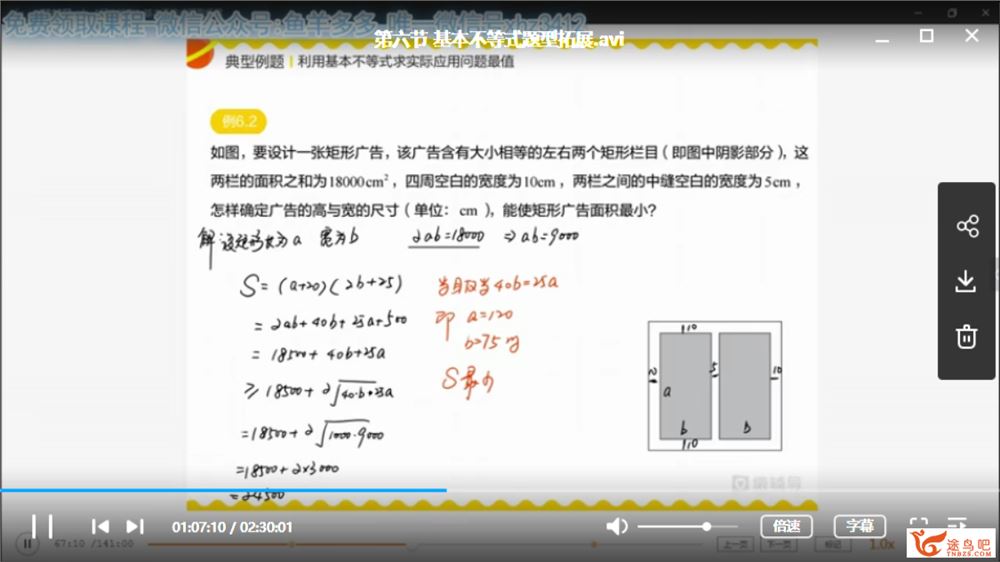 免费领取课程-微信公众号:鱼羊多多 唯一微信号:hz3412
第六节 基本不等式题型拓展.avi
典型例题 | 利用基本不等式求实际应用问题最值
例6.2
如图，要设计一张矩形广告，该广告含有大小相等的左右两个矩形栏目（即图中阴影部分），这
两栏的面积之和为18000cm²，四周空白的宽度为10cm，两栏之间的中缝空白的宽度为5cm，
怎样确定广告的高与宽的尺寸（单位：cm），能使矩形广告面积最小？
解 a 宽为b 2ab=18000 ⇒ab=9000
S=(a+20)(2b+25)
=2ab+40b+25a+500
=18500+40b+25a
≥18500+2√40·b·25a
=18500+2√1000·9000
=18500+2×3000
=24500
当且仅当40b=25a
即 a=120
b=75时
S最小
10
5
10
a
b
b
10
01:07:10 / 02:30:01
倍速
字幕
67:10 /141:00
上一页
下一页
标记
1.0x
途鸟吧
TNBZS.COM